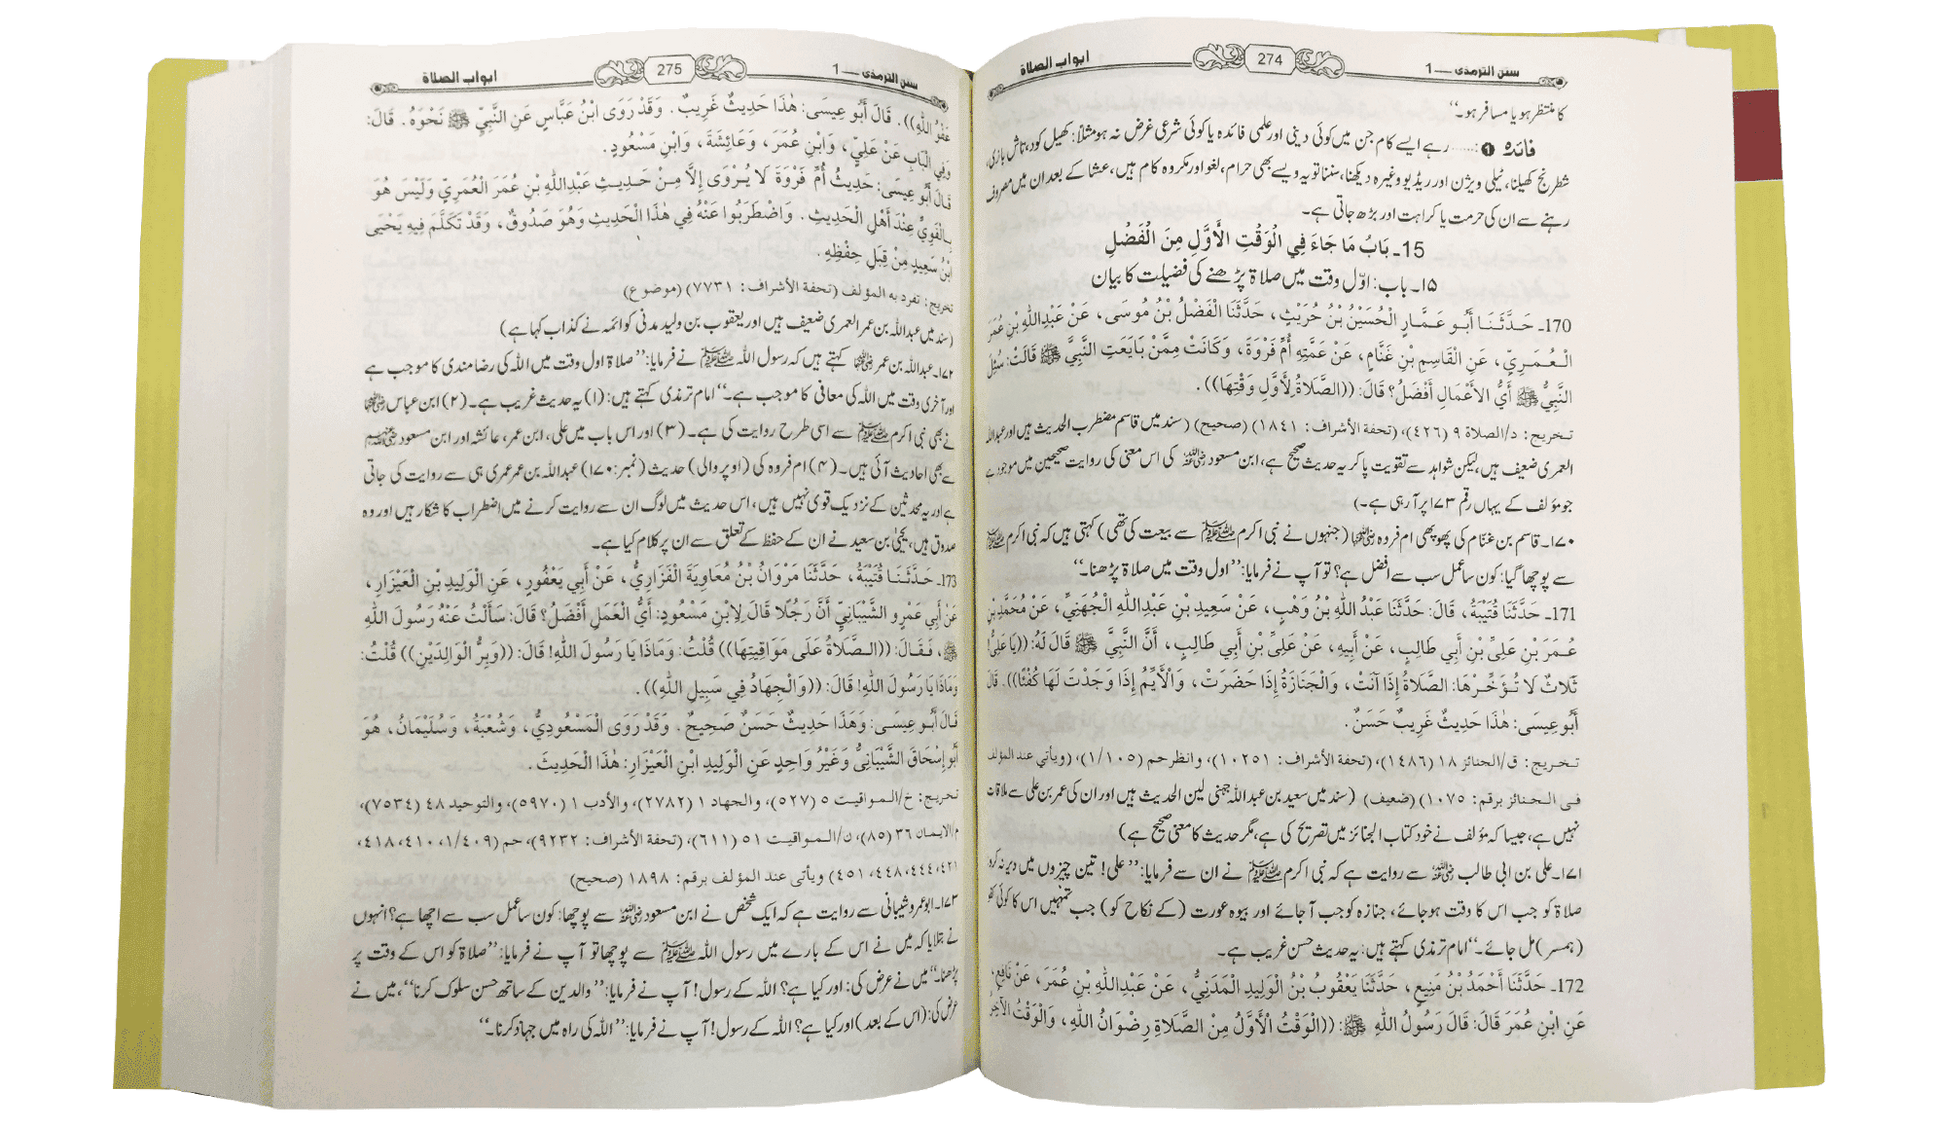 سنن الترمذی — 1
274
ابواب الصلاة
کا منتظر ہو یا مسافر ہو۔‘‘
فائدہ ❶ :..... رہے ایسے کام جن میں کوئی دینی اور علمی فائدہ یا کوئی شرعی غرض نہ ہو مثلاً: کھیل کود، تاش بازی،
شطرنج کھیلنا، ٹیلی ویژن اور ریڈیو وغیرہ دیکھنا، سننا تو یہ ویسے بھی حرام، لغو اور مکروہ کام ہیں، عشا کے بعد ان میں مصروف
رہنے سے ان کی حرمت یا کراہت اور بڑھ جاتی ہے۔
15۔ بَابُ مَا جَاءَ فِي الْوَقْتِ الْأَوَّلِ مِنَ الْفَضْلِ
۱۵۔ باب: اوّل وقت میں صلاۃ پڑھنے کی فضیلت کا بیان
170۔ حَدَّثَنَا أَبُو عَمَّارٍ الْحُسَيْنُ بْنُ حُرَيْثٍ، حَدَّثَنَا الْفَضْلُ بْنُ مُوسَى، عَنْ عَبْدِاللّٰهِ بْنِ عُمَرَ
الْعُمَرِيِّ، عَنِ الْقَاسِمِ بْنِ غَنَّامٍ، عَنْ عَمَّتِهِ أُمِّ فَرْوَةَ، وَكَانَتْ مِمَّنْ بَايَعَتِ النَّبِيَّ ﷺ قَالَتْ: سُئِلَ
النَّبِيُّ ﷺ أَيُّ الأَعْمَالِ أَفْضَلُ؟ قَالَ: ((الصَّلَاةُ لِأَوَّلِ وَقْتِهَا)) .
تخريج: د/الصلاة ٩ (٤٢٦)، (تحفة الأشراف: ١٨٤١) (صحيح) (سند میں قاسم مضطرب الحدیث ہیں اور عبداللہ
العمری ضعیف ہیں، لیکن شواہد سے تقویت پا کر یہ حدیث صحیح ہے، ابن مسعود رضی اللہ عنہ کی اس معنی کی روایت صحیحین میں موجود ہے
جو مؤلف کے یہاں رقم ۱۷۳ پر آ رہی ہے۔)
۱۷۰۔ قاسم بن غنّام کی پھوپھی ام فروہ رضی اللہ عنہا (جنہوں نے نبی اکرم ﷺ سے بیعت کی تھی) کہتی ہیں کہ نبی اکرم ﷺ
سے پوچھا گیا: کون سا عمل سب سے افضل ہے؟ تو آپ نے فرمایا: ’’اول وقت میں صلاۃ پڑھنا۔‘‘
171۔ حَدَّثَنَا قُتَيْبَةُ، قَالَ: حَدَّثَنَا عَبْدُ اللّٰهِ بْنُ وَهْبٍ، عَنْ سَعِيدِ بْنِ عَبْدِاللّٰهِ الْجُهَنِيِّ، عَنْ مُحَمَّدِ بْنِ
عُمَرَ بْنِ عَلِيِّ بْنِ أَبِي طَالِبٍ، عَنْ أَبِيهِ، عَنْ عَلِيِّ بْنِ أَبِي طَالِبٍ، أَنَّ النَّبِيَّ ﷺ قَالَ لَهُ: ((يَا عَلِيُّ!
ثَلَاثٌ لَا تُؤَخِّرْهَا: الصَّلَاةُ إِذَا آنَتْ، وَالْجَنَازَةُ إِذَا حَضَرَتْ، وَالْأَيِّمُ إِذَا وَجَدْتَ لَهَا كُفْئًا)). قَالَ
أَبُو عِيسَى: هٰذَا حَدِيثٌ غَرِيبٌ حَسَنٌ .
تخريج: ق/الجنائز ١٨ (١٤٨٦)، (تحفة الأشراف: ١٠٢٥١)، وانظر حم (١/١٠٥)، (ويأتي عند المؤلف
فى الجنائز برقم: ١٠٧٥) (ضعيف) (سند میں سعید بن عبداللہ جہنی لین الحدیث ہیں اور ان کی عمر بن علی سے ملاقات
نہیں ہے، جیسا کہ مؤلف نے خود کتاب الجنائز میں تصریح کی ہے، مگر حدیث کا معنی صحیح ہے)
۱۷۱۔ علی بن ابی طالب رضی اللہ عنہ سے روایت ہے کہ نبی اکرم ﷺ نے ان سے فرمایا: ’’علی! تین چیزوں میں دیر نہ کرو
صلاۃ کو جب اس کا وقت ہو جائے، جنازہ کو جب آ جائے اور بیوہ عورت (کے نکاح کو) جب تمہیں اس کا کوئی کفو
(ہمسر) مل جائے۔‘‘ امام ترمذی کہتے ہیں: یہ حدیث حسن غریب ہے۔
172۔ حَدَّثَنَا أَحْمَدُ بْنُ مَنِيعٍ، حَدَّثَنَا يَعْقُوبُ بْنُ الْوَلِيدِ الْمَدَنِيُّ، عَنْ عَبْدِاللّٰهِ بْنِ عُمَرَ، عَنْ نَافِعٍ،
عَنِ ابْنِ عُمَرَ قَالَ: قَالَ رَسُولُ اللّٰهِ ﷺ: ((الْوَقْتُ الْأَوَّلُ مِنَ الصَّلَاةِ رِضْوَانُ اللّٰهِ، وَالْوَقْتُ الْآخِرُ
سنن الترمذی — 1
275
ابواب الصلاة
عَفْوُ اللّٰهِ)). قَالَ أَبُو عِيسَى: هٰذَا حَدِيثٌ غَرِيبٌ. وَقَدْ رَوَى ابْنُ عَبَّاسٍ عَنِ النَّبِيِّ ﷺ نَحْوَهُ. قَالَ:
وَفِي الْبَابِ عَنْ عَلِيٍّ، وَابْنِ عُمَرَ، وَعَائِشَةَ، وَابْنِ مَسْعُودٍ.
قَالَ أَبُو عِيسَى: حَدِيثُ أُمِّ فَرْوَةَ لَا يُرْوَى إِلَّا مِنْ حَدِيثِ عَبْدِاللّٰهِ بْنِ عُمَرَ الْعُمَرِيِّ وَلَيْسَ هُوَ
بِالْقَوِيِّ عِنْدَ أَهْلِ الْحَدِيثِ. وَاضْطَرَبُوا عَنْهُ فِي هٰذَا الْحَدِيثِ وَهُوَ صَدُوقٌ، وَقَدْ تَكَلَّمَ فِيهِ يَحْيَى
ابْنُ سَعِيدٍ مِنْ قِبَلِ حِفْظِهِ .
تخريج: تفرد به المؤلف (تحفة الأشراف: ٧٧٣١) (موضوع)
(سند میں عبداللہ بن عمر العمری ضعیف ہیں اور یعقوب بن ولید مدنی کو ائمہ نے کذاب کہا ہے)
۱۷۲۔ عبداللہ بن عمر رضی اللہ عنہما کہتے ہیں کہ رسول اللہ ﷺ نے فرمایا: ’’صلاۃ اول وقت میں اللہ کی رضا مندی کا موجب ہے
اور آخری وقت میں اللہ کی معافی کا موجب ہے۔‘‘ امام ترمذی کہتے ہیں: (۱) یہ حدیث غریب ہے۔ (۲) ابن عباس رضی اللہ عنہما
نے بھی نبی اکرم ﷺ سے اسی طرح روایت کی ہے۔ (۳) اور اس باب میں علی، ابن عمر، عائشہ اور ابن مسعود رضی اللہ عنہم
سے بھی احادیث آئی ہیں۔ (۴) ام فروہ کی (اوپر والی) حدیث (نمبر: ۱۷۰) عبداللہ بن عمر عمری ہی سے روایت کی جاتی
ہے اور یہ محدثین کے نزدیک قوی نہیں ہیں، اس حدیث میں لوگ ان سے روایت کرنے میں اضطراب کا شکار ہیں اور وہ
صدوق ہیں، یحییٰ بن سعید نے ان کے حفظ کے تعلق سے ان پر کلام کیا ہے۔
173۔ حَدَّثَنَا قُتَيْبَةُ، حَدَّثَنَا مَرْوَانُ بْنُ مُعَاوِيَةَ الْفَزَارِيُّ، عَنْ أَبِي يَعْفُورٍ، عَنِ الْوَلِيدِ بْنِ الْعَيْزَارِ،
عَنْ أَبِي عَمْرٍو الشَّيْبَانِيِّ أَنَّ رَجُلًا قَالَ لِابْنِ مَسْعُودٍ: أَيُّ الْعَمَلِ أَفْضَلُ؟ قَالَ: سَأَلْتُ عَنْهُ رَسُولَ اللّٰهِ
ﷺ، فَقَالَ: ((الصَّلَاةُ عَلَى مَوَاقِيتِهَا)) قُلْتُ: وَمَاذَا يَا رَسُولَ اللّٰهِ! قَالَ: ((وَبِرُّ الْوَالِدَيْنِ)) قُلْتُ:
وَمَاذَا يَا رَسُولَ اللّٰهِ! قَالَ: ((وَالْجِهَادُ فِي سَبِيلِ اللّٰهِ)) .
قَالَ أَبُو عِيسَى: وَهَذَا حَدِيثٌ حَسَنٌ صَحِيحٌ. وَقَدْ رَوَى الْمَسْعُودِيُّ، وَشُعْبَةُ، وَسُلَيْمَانُ، هُوَ
أَبُو إِسْحَاقَ الشَّيْبَانِيُّ وَغَيْرُ وَاحِدٍ عَنِ الْوَلِيدِ ابْنِ الْعَيْزَارِ: هٰذَا الْحَدِيثَ .
تخريج: خ/المواقيت ٥ (٥٢٧)، والجهاد ١ (٢٧٨٢)، والأدب ١ (٥٩٧٠)، والتوحيد ٤٨ (٧٥٣٤)،
م/الايمان ٣٦ (٨٥)، ن/المواقيت ٥١ (٦١١)، (تحفة الأشراف: ٩٢٣٢)، حم (١/٤٠٩، ٤١٠، ٤١٨،
٤٢١، ٤٤٤، ٤٤٨، ٤٥١) ويأتى عند المؤلف برقم: ١٨٩٨ (صحيح)
۱۷۳۔ ابوعمرو شیبانی سے روایت ہے کہ ایک شخص نے ابن مسعود رضی اللہ عنہ سے پوچھا: کون سا عمل سب سے اچھا ہے؟ انہوں
نے بتلایا کہ میں نے اس کے بارے میں رسول اللہ ﷺ سے پوچھا تو آپ نے فرمایا: ’’صلاۃ کو اس کے وقت پر
پڑھنا۔‘‘ میں نے عرض کی: اور کیا ہے؟ اللہ کے رسول! آپ نے فرمایا: ’’والدین کے ساتھ حسن سلوک کرنا‘‘، میں نے
عرض کی: (اس کے بعد) اور کیا ہے؟ اللہ کے رسول! آپ نے فرمایا: ’’اللہ کی راہ میں جہاد کرنا۔‘‘